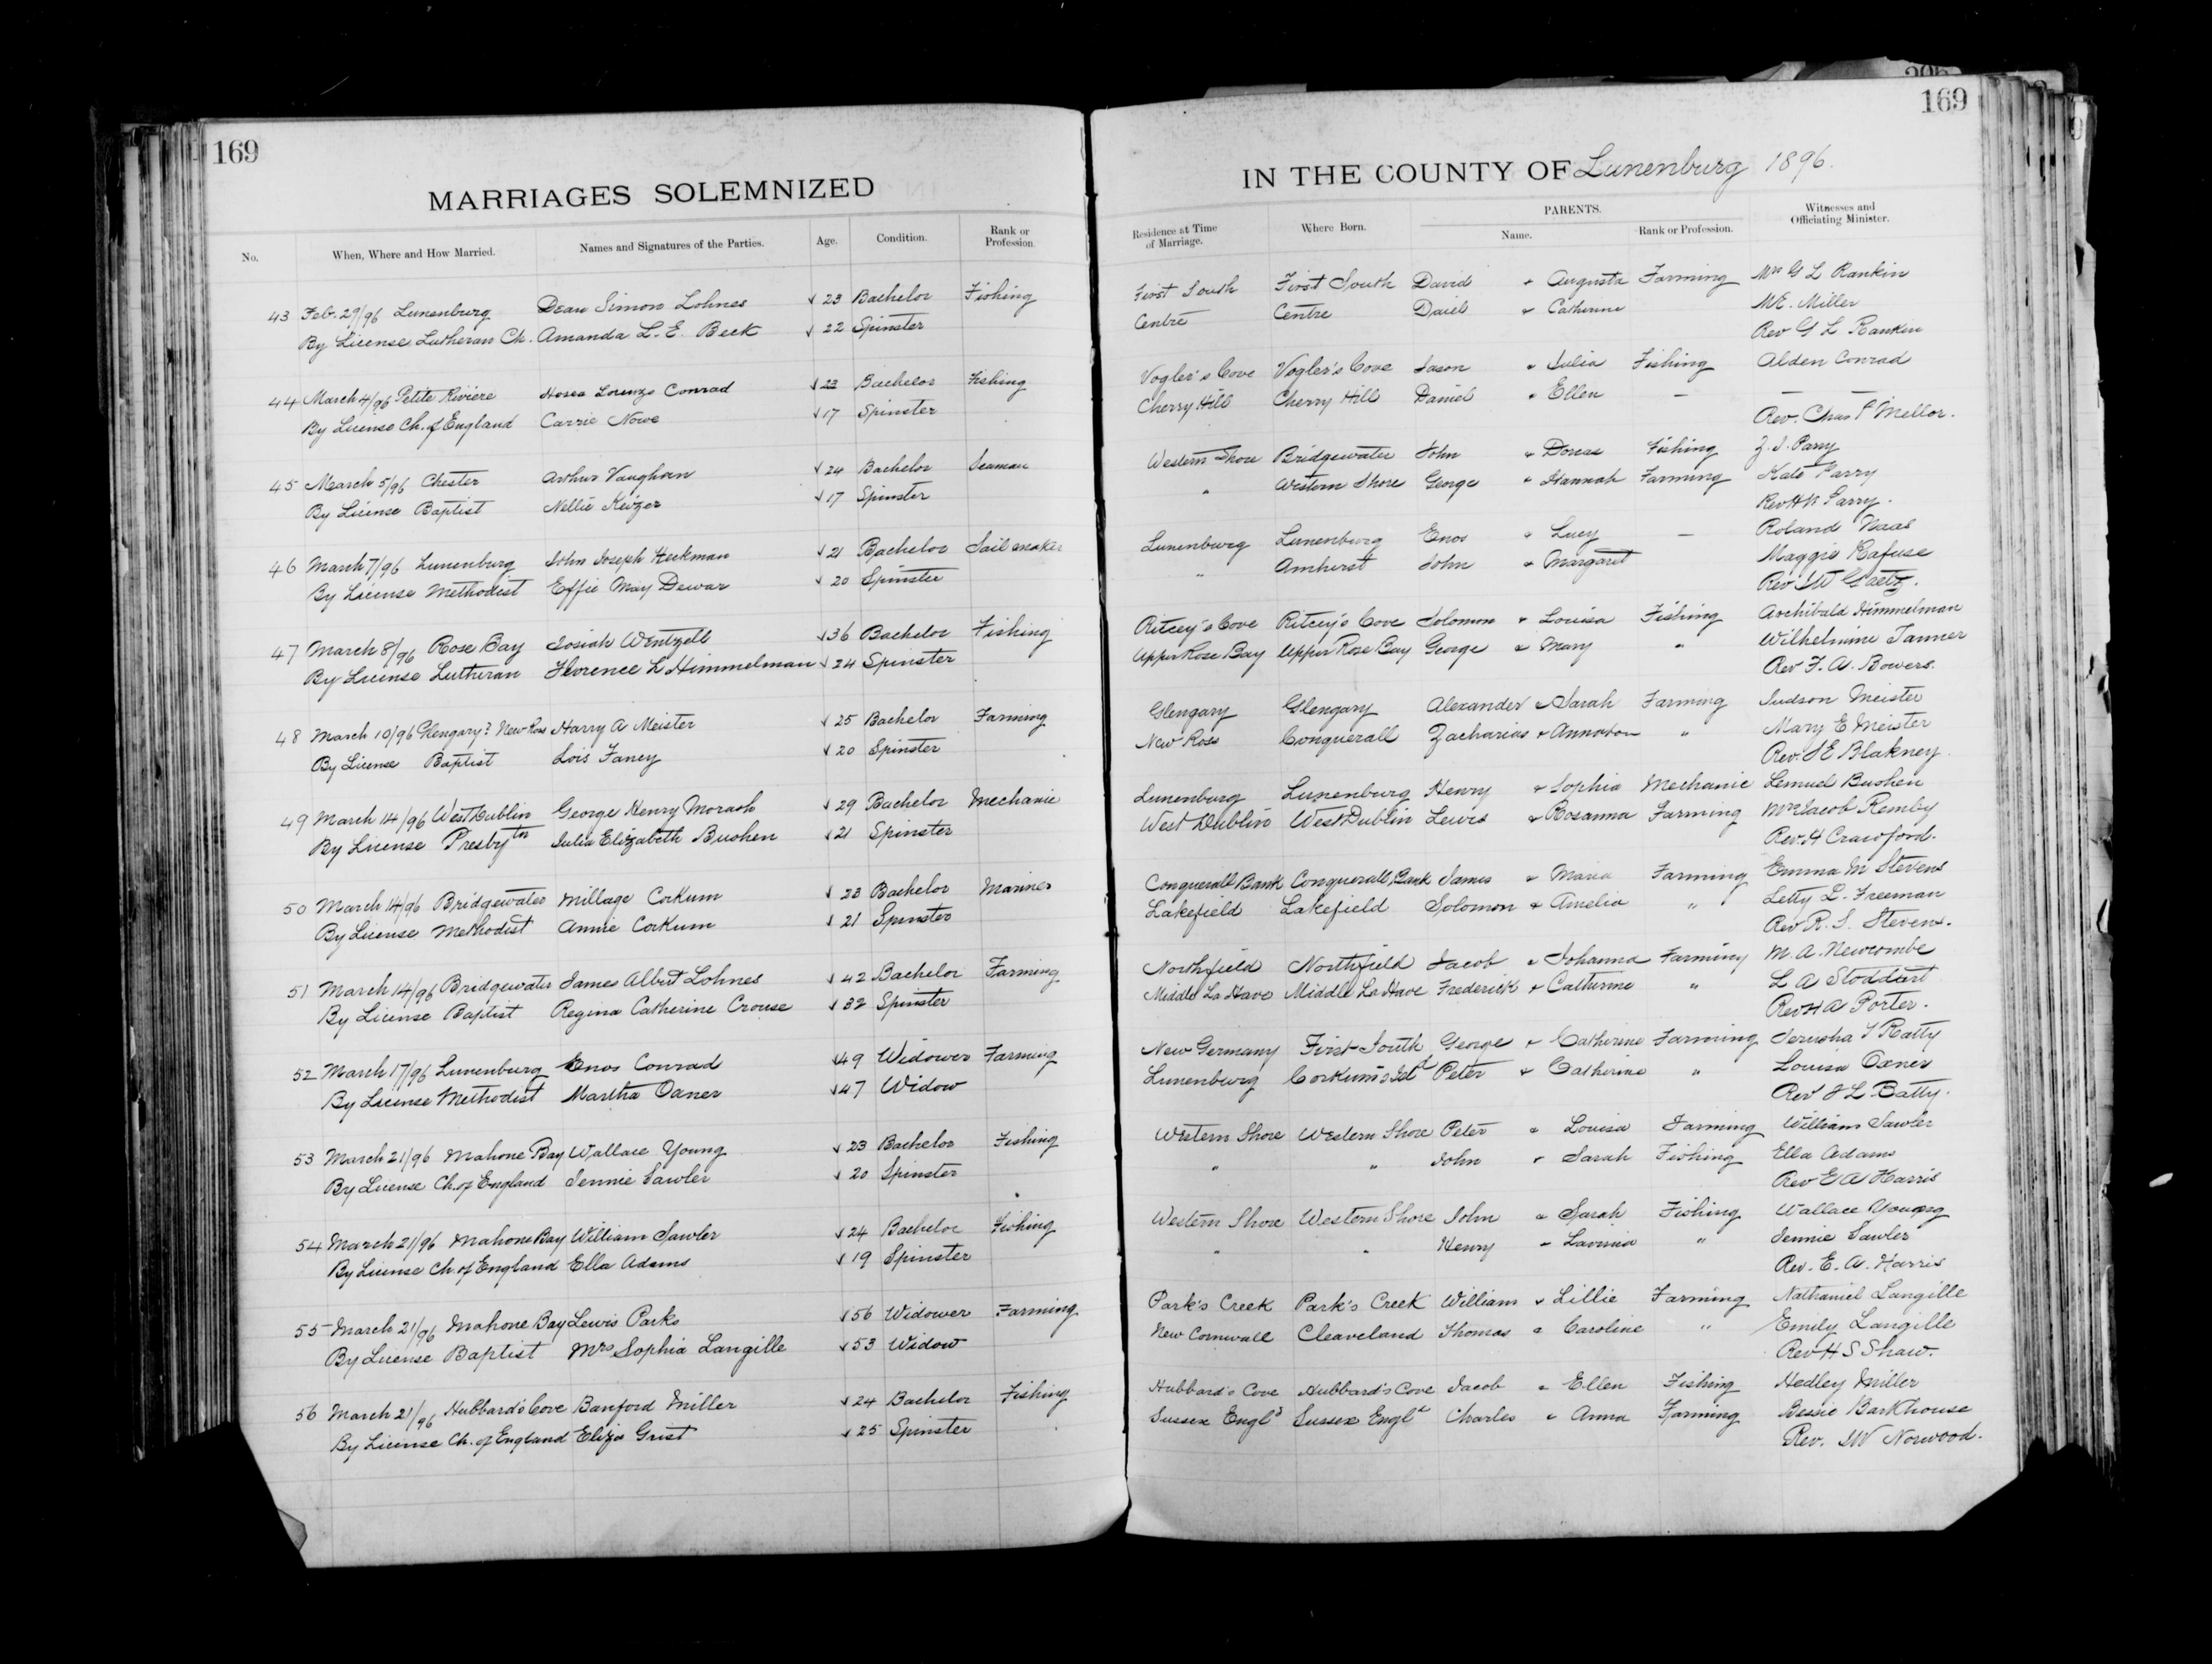 205
169
169
MARRIAGES SOLEMNIZED
IN THE COUNTY OF Lunenburg 1896.
No. When, Where and How Married. Names and Signatures of the Parties. Age. Condition. Rank or Profession. Residence at Time of Marriage. Where Born. PARENTS. Name. Rank or Profession. Witnesses and Officiating Minister.
43 Feb. 29/96 Lunenburg Dean Simon Lohnes 23 Bachelor Fishing First South First South David & Augusta Farming Mrs G L Rankin
By License Lutheran Ch. Amanda L. E. Beck 22 Spinster Centre Centre & Catherine M E. Miller
Rev G L Rankin
44 March 4/96 Petite Riviere Hosea Lorenzo Conrad 23 Bachelor Fishing Vogler's Cove Vogler's Cove Jason & Julia Fishing Alden Conrad
By License Ch. of England Carrie Nowe 17 Spinster Cherry Hill Cherry Hill Daniel & Ellen — —
Rev. Chas P Mellor.
45 March 5/96 Chester Arthur Vaughan 24 Bachelor Seaman Western Shore Bridgewater John & Dorcas Fishing Z. J. Parry
By License Baptist Nellie Keizer 17 Spinster " Western Shore George & Hannah Farming Kate Parry
Rev H N Parry.
46 March 7/96 Lunenburg John Joseph Heckman 21 Bachelor Sail maker Lunenburg Lunenburg Enos & Lucy — Roland Naas
By License Methodist Effie May Dewar 20 Spinster " Amherst John & Margaret Maggie Rafuse
Rev. J W Gaetz.
47 March 8/96 Rose Bay Josiah Wentzell 36 Bachelor Fishing Ritcey's Cove Ritcey's Cove Solomon & Louisa Fishing Archibald Himmelman
By License Lutheran Florence L Himmelman 24 Spinster Upper Rose Bay Upper Rose Bay George & Mary " Wilhelmine Tanner
Rev F. A. Bowers.
48 March 10/96 Glengary? New Ross Harry A Meister 25 Bachelor Farming Glengary Glengary Alexander & Sarah Farming Judson Meister
By License Baptist Lois Faney 20 Spinster New Ross Conquerall Zacharias & " Mary E Meister
Rev. S E Blakney.
49 March 14/96 West Dublin George Henry Morash 29 Bachelor Mechanic Lunenburg Lunenburg Henry & Sophia Mechanic Lemuel Bushen
By License Presbytn Julia Elizabeth Bushen 21 Spinster West Dublin West Dublin Lewis & Rosanna Farming Mrs Jacob Remby
Rev. H Crawford.
50 March 14/96 Bridgewater Millage Corkum 23 Bachelor Mariner Conquerall Bank Conquerall Bank James & Maria Farming Emma M Stevens
By License Methodist Annie Corkum 21 Spinster Lakefield Lakefield Solomon & Amelia " Letty L. Freeman
Rev R. S. Stevens.
51 March 14/96 Bridgewater James Albert Lohnes 42 Bachelor Farming Northfield Northfield Jacob & Johanna Farming M. A. Newcombe
By License Baptist Regina Catherine Crouse 32 Spinster Middle La Have Middle La Have Frederick & Catherine " L A Stoddart
Rev H A Porter.
52 March 17/96 Lunenburg Enos Conrad 49 Widower Farming New Germany First South George & Catherine Farming Jerusha T Batty
By License Methodist Martha Oxner 47 Widow Lunenburg Corkum's Isld Peter & Catherine " Louisa Oxner
Rev J L Batty.
53 March 21/96 Mahone Bay Wallace Young 23 Bachelor Fishing Western Shore Western Shore Peter & Louisa Farming William Sawler
By License Ch. of England Jennie Sawler 20 Spinster " " John & Sarah Fishing Ella Adams
Rev E A Harris
54 March 21/96 Mahone Bay William Sawler 24 Bachelor Fishing Western Shore Western Shore John & Sarah Fishing Wallace Young
By License Ch. of England Ella Adams 19 Spinster " " Henry & Lavinia " Jennie Sawler
Rev. E. A. Harris
55 March 21/96 Mahone Bay Lewis Parks 56 Widower Farming Park's Creek Park's Creek William & Lillie Farming Nathaniel Langille
By License Baptist Mrs Sophia Langille 53 Widow New Cornwall Cleaveland Thomas & Caroline " Emily Langille
Rev H S Shaw.
56 March 21/96 Hubbard's Cove Banford Miller 24 Bachelor Fishing Hubbard's Cove Hubbard's Cove Jacob & Ellen Fishing Hedley Miller
By License Ch. of England Eliza Grist 25 Spinster Sussex Engld Sussex Engld Charles & Anna Farming Bessie Barkhouse
Rev. J W Norwood.